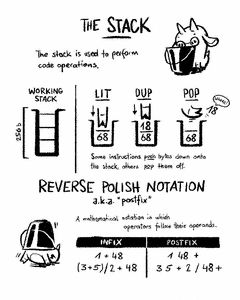 THE STACK
The stack is used to perform
code operations.
WORKING
STACK
256 b
LIT
68
DUP
18
68
POP
68
18
Some instructions push bytes down onto
the stack, others pop them off.
REVERSE POLISH NOTATION
a.k.a. "postfix"
A mathematical notation in which
operators follow their operands.
INFIX
POSTFIX
1 + 48
1 48 +
(3+5)/2 + 48
3 5 + 2 / 48 +